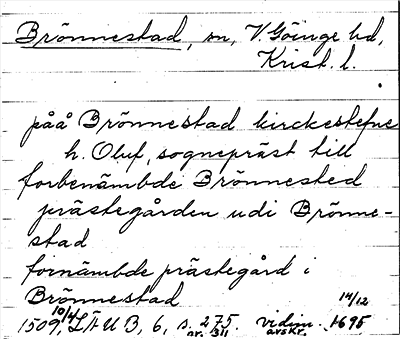 Brönnestad, sn, V. Göinge hd,
Krist. l.
påå Brönnestad kirckestefne
h. Oluf, sognepräst till
forbenämbde Brönnested
prästegården udi Brönne-
stad
fornämbde prästegård i
Brönnestad
1509 10/4, LÄUB, 6, s. 275. vidim. 14/12 1695
nr. 311 avskr.